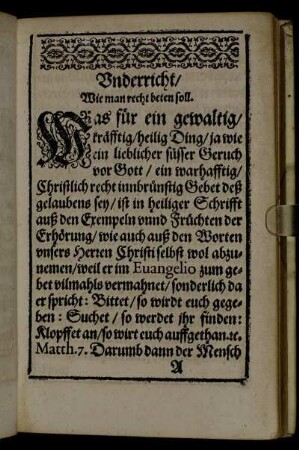 Vnderricht/
Wie man recht beten soll.
WAs für ein gewaltig/
kräfftig/heilig Ding/ja wie
ein lieblicher süsser Geruch
vor Gott / ein warhafftig/
Christlich recht innbrünstig Gebet deß
gelaubens sey/ ist in heiliger Schrifft
auß den Exempeln vnnd Früchten der
Erhörung/ wie auch auß den Worten
vnsers Herren Christi selbst wol abzu-
nemen/weil er im Euangelio zum ge-
bet vilmahls vermahnet/sonderlich da
er spricht: Bittet/ so wirdt euch gege-
ben: Suchet / so werdet jhr finden:
Klopffet an/so wirt euch auffgethan.ꝛc.
Matth.7. Darumb dann der Mensch
A